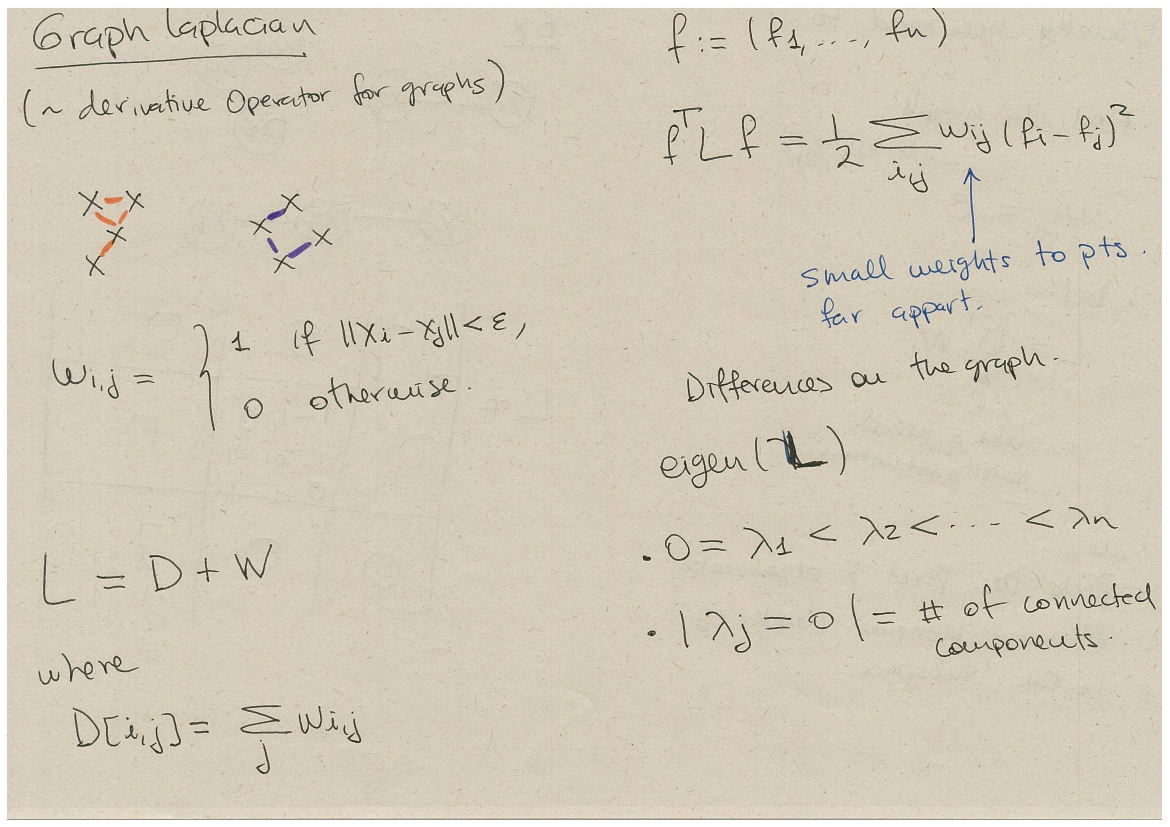 Graph laplacian
(~ derivative Operator for graphs)
X X
X
X
X
X X
X
wi,j = { 1 if ||Xi - Xj|| < ε,
0 otherwise.
L = D + W
where
D[i,j] = Σ wi,j
j
f := (f1, ..., fn)
fᵀLf = 1/2 Σ wij (fi - fj)²
i,j
small weights to pts.
far appart.
Differences on the graph.
eigen(L)
. 0 = λ1 < λ2 < ... < λn
. | λj = 0 | = # of connected
components.